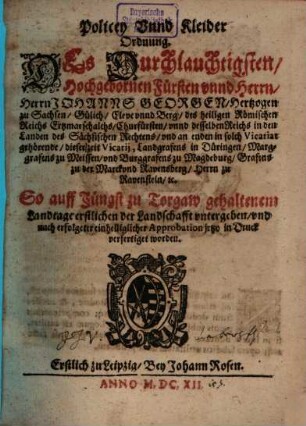 Bayerische
Policey Vnnd Kleider
Ordnung.
DEs Durchlauchtigsten/
Hochgebornen Fürsten vnnd Herrn/
Herrn JOHANNS GEORGEN/ Hertzogen
zu Sachsen/ Gülich/ Cleve vnnd Berg/ des heiligen Römischen
Reichs Ertzmarschalchs/ Churfürsten/ vnnd desselben Reichs in den
Landen des Sächsischen Rechtens/ vnd an enden in solch Vicariat
gehörende/ dieserzeit Vicarij, Landgrafens in Düringen/ Marg-
grafens zu Meissen/ vnd Burggrafens zu Magdeburg/ Grafens
zu der Marck vnd Ravensberg/ Herrn zu
Ravenstein/ ꝛc.
So auff Jüngst zu Torgaw gehaltenem
Landtage erstlichen der Landschafft vntergeben/ vnd
nach erfolgeter einhelliglicher Approbation jetzo in Druck
verfertiget worden.
Erstlich zu Leipzig/ Bey Johann Rosen.
ANNO M. DC. XII